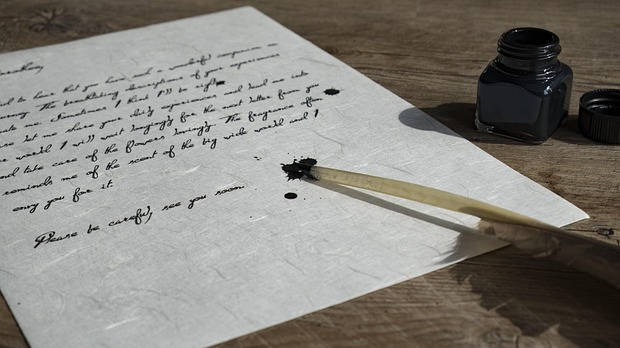 to hear that you have and a wonderful companion on
The breathtaking descriptions of your experiences
me. Sometimes I think I'll
let me share your daily experiences and me into
world I will wait longingly for the next letter from you
take care of the flowers lovingly. The fragrance of
reminds me of the scent of the big wide world and I
envy you for it.
Please be careful, see you soon